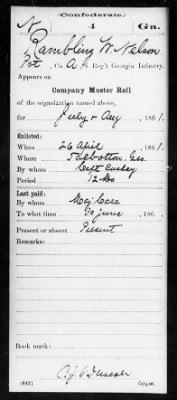 Confederate.
N 4 Ga.
Rambling W. Nelson
Pvt, Co. A, 4 Reg't Georgia Infantry.
Appears on
Company Muster Roll
of the organization named above,
for July & Aug, 1861.
Enlisted:
When 26 April, 1861.
Where Talbotton, Geo
By whom Capt Curley
Period 12 Mo
Last paid:
By whom Maj
To what time 30 June, 186 .
Present or absent Present
Remarks:
Book mark:
(642) Copyist.